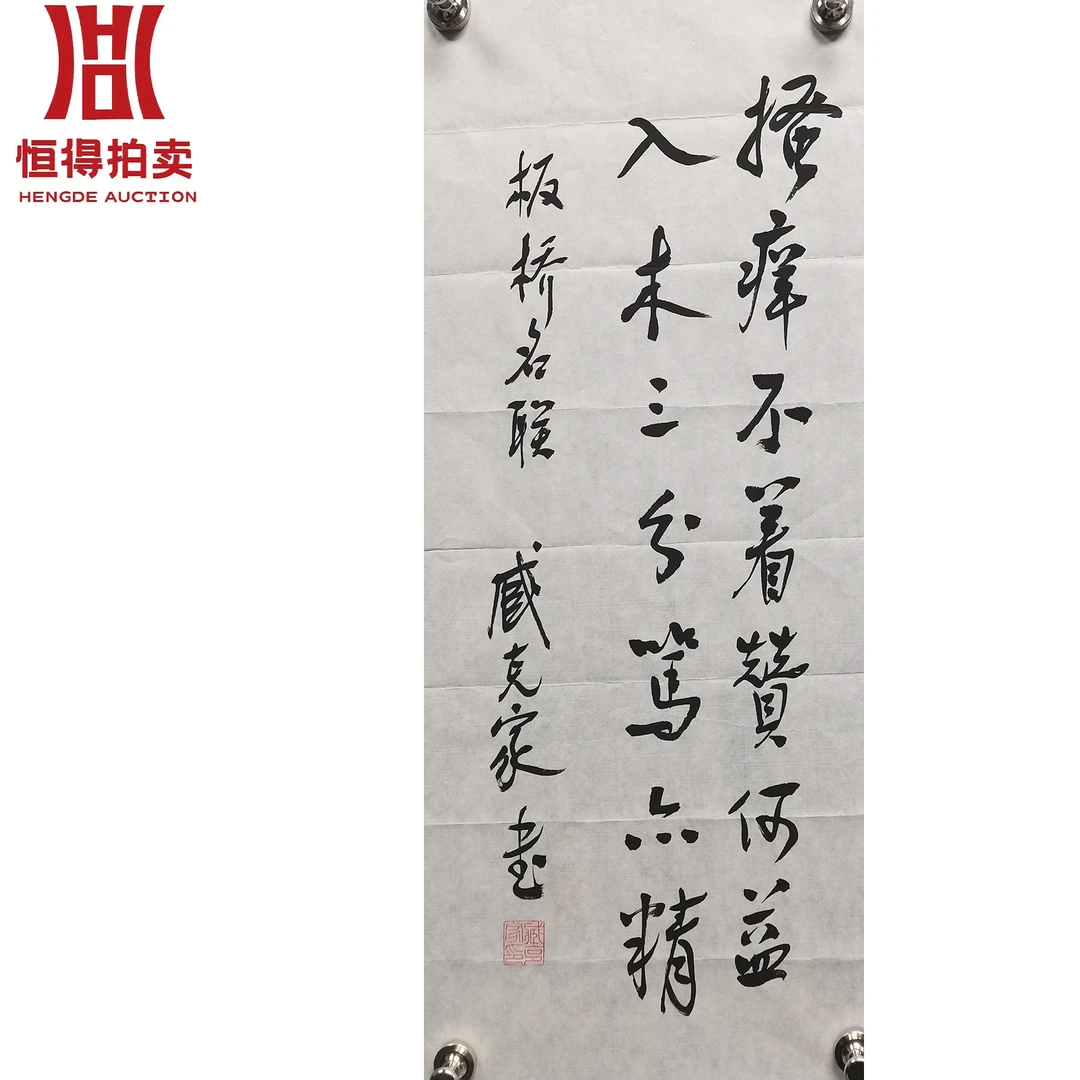 恒得拍卖
HENGDE AUCTION
搔痒不着贊何益
入木三分骂亦精
板桥名联 臧克家书